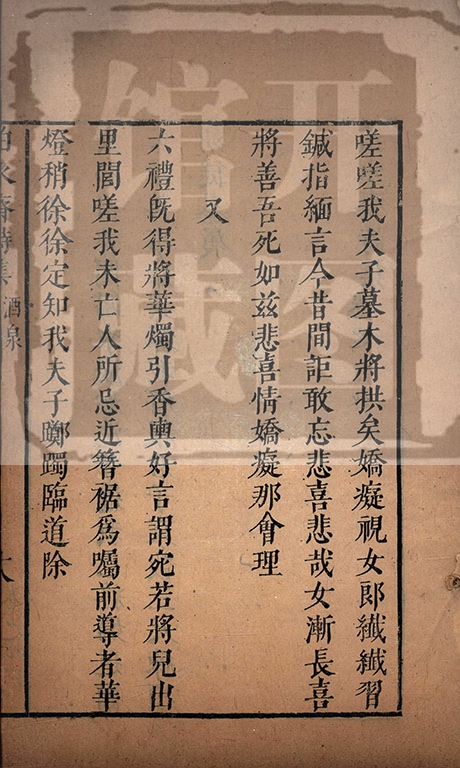 嗟嗟我夫子墓木將拱矣嬌癡視女郎纖纖習
鍼指緬言今昔間詎敢忘悲喜悲哉女漸長喜
將善吾死如兹悲喜情嬌癡那會理
又
六禮旣得將華燭引香輿好言謂宛若將兒出
里閭嗟我未亡人所忌近簪裾爲囑前導者華
燈稍徐徐定知我夫子躑躅臨道除
酒泉
开图
馆藏